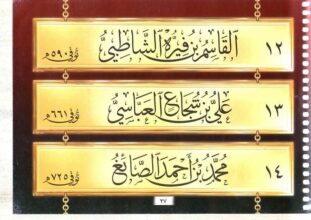 ١٢ القَاسِمُ بْنُ فِيرُّه الشَّاطِبِيُّ توفي ٥٩٠هـ
١٣ عَلِيُّ بْنُ شُجَاعٍ العَبَّاسِيُّ توفي ٦٦١هـ
١٤ مُحَمَّدُ بْنُ أَحْمَدَ الصَّائِغُ توفي ٧٢٥هـ
٢٧